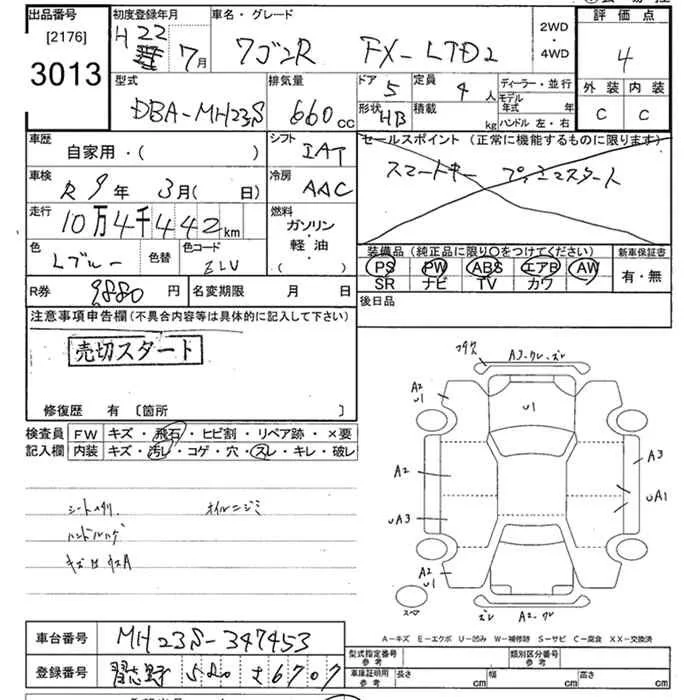 出品番号 初度登録年月 車名・グレード 2WD・4WD 評価点
[2176] H22 7月 ワゴンR FX-LTD2 4
3013
型式 排気量 ドア 5 定員 4人 ディーラー・並行 外装 内装
DBA-MH23S 660cc 形状 HB 積載 kg モデル年式 年 C C
ハンドル 左・右
車歴 シフト セールスポイント (正常に機能するものに限ります)
自家用・( ) IAT スマートキー プッシュスタート
車検 冷房
R9年 3月( 日) AAC
走行 燃料
10万4千442km ガソリン・軽油・( )
色 色替 色コード 装備品(純正品に限り○をつけてください) 新車保証書
Lブルー ZLV PS PW ABS エアB AW 有・無
SR ナビ TV カワ
R券 9880円 名変期限 月 日 後日品
注意事項申告欄(不具合内容等は具体的に記入して下さい)
売切スタート
修復歴 有 [箇所 ]
検査員 FW キズ・飛石・ヒビ割・リペア跡・×要
記入欄 内装 キズ・汚レ・コゲ・穴・スレ・キレ・破レ
オイルニジミ
ハンドルハゲ
A3・ワレ・ズレ
A2 U1 U1
A2 A3
UA3 UA1
A2 U1
スペア ズレ A2・ワレ
A-キズ E-エクボ U-凹み W-補修跡 S-サビ C-腐食 XX-交換済
車台番号 MH23S-347453
登録番号 習志野 580 さ6707
型式指定番号 参考 類別区分番号 参考
車庫証明用 参考 長さ cm 幅 cm 高さ cm